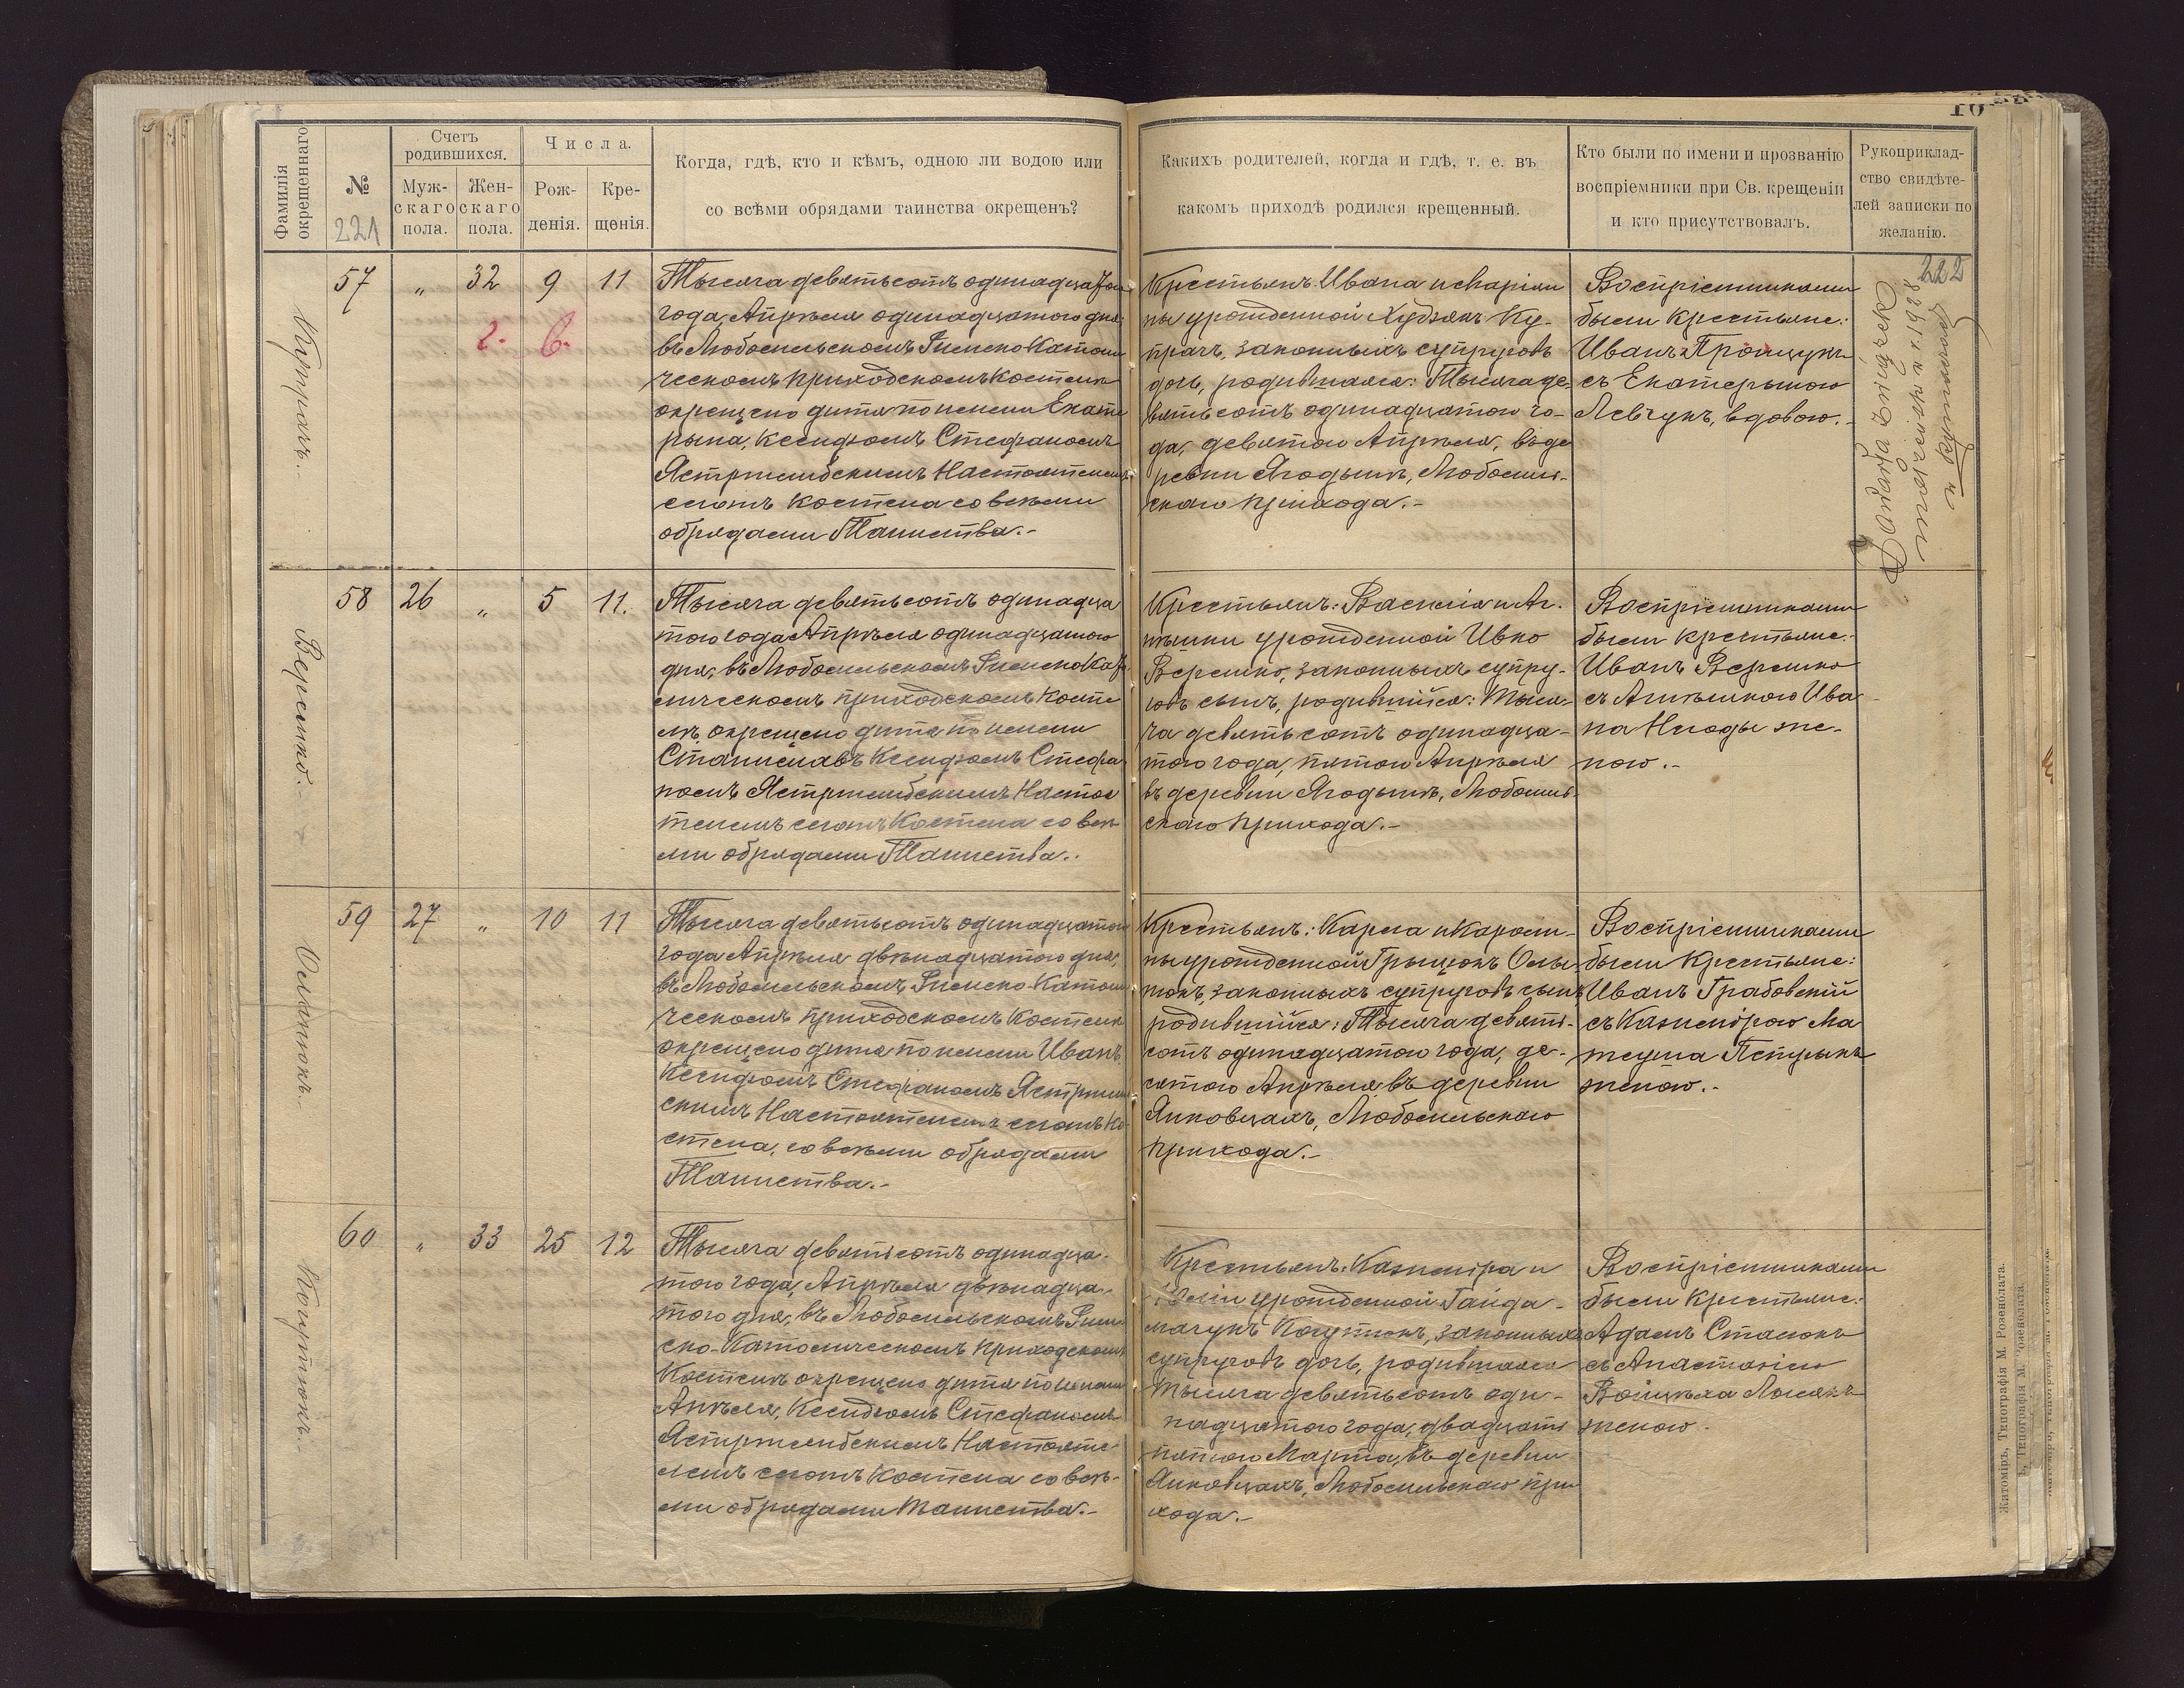 Фамилія окрещеннаго
№
221
Счетъ родившихся.
Мужскаго пола.
Женскаго пола.
Числа.
Рожденія.
Крещенія.
Когда, гдѣ, кто и кѣмъ, одною ли водою или
со всѣми обрядами таинства окрещенъ?
Какихъ родителей, когда и гдѣ, т. е. въ
какомъ приходѣ родился крещенный.
Кто были по имени и прозванію
воспріемники при Св. крещеніи
и кто присутствовалъ.
Рукоприклад-
ство свидѣте-
лей записки по
желанію.
222
Купрачъ.
57 " 32 9 11
2. 6.
Тысяча девятьсотъ одинадцатаго
года, Апрѣля одинадцатого дня,
въ Любомльскомъ Римско Католи
ческомъ приходскомъ Костелѣ
окрещено дитя по имени Екате
рына, Ксендзомъ Стефаномъ
Ястржембскимъ Настоятелемъ
сегожъ Костела со всѣми
обрядами Таинства.-
Крестьянъ: Ивана и Маріян
ны урожденной Худзякъ Ку-
прачъ, законныхъ супруговъ
дочь, родившаяся: Тысяча де-
вятьсотъ одинадцатого го-
да, девятого Апрѣля, въ де
ревни Ягодынѣ, Любомль-
скаго прихода.-
Воспріемниками
были крестьяне:
Иванъ Процукъ
съ Екатерыною
Левчукъ, вдовою.-
Веремко.
58 26 " 5 11.
Тысяча девятьсотъ одинадца
того года Апрѣля одинадцатого
дня, въ Любомльскомъ Римско Като
лическомъ приходскомъ Косте
лѣ, окрещено дитя по имени
Станиславъ Ксендзомъ Стефа
номъ Ястржембскимъ Настоя
телемъ сегожъ Костела со всѣ
ми обрядами Таинства.-
Крестьянъ: Василія и Аг-
нѣшки урожденной Ивко
Веремко, законныхъ супру-
говъ сынъ, родившійся: Тыся-
ча девятьсотъ одинадца-
того года, пятого Апрѣля
въ деревни Ягодынѣ, Любомль-
скаго прихода.-
Воспріемниками
были крестьяне:
Иванъ Веремко
съ Агнѣшкою Ива
на Нигоды же-
ною.-
59 27 " 10 11
Тысяча девятьсотъ одинадцатого
года Апрѣля двѣнадцатого дня,
въ Любомльскомъ Римско-Католи
ческомъ приходскомъ Костелѣ
окрещено дитя по имени Иванъ
Ксендзомъ Стефаномъ Ястржемб
скимъ Настоятелемъ сегожъ Ко
стела, со всѣми обрядами
Таинства.-
Крестьянъ: Карла и Кароли-
ны урожденной Грыцюкъ
законныхъ супруговъ сынъ
родившійся: Тысяча девять-
сотъ одинадцатого года, де-
сятого Апрѣля, въ деревни
Янковцахъ, Любомльскаго
прихода.-
Воспріемниками
были Крестьяне:
Иванъ Грабовскій
съ Казимірою Ма
теуша Петрукъ
женою.-
60 " 33 25 12
Тысяча девятьсотъ одинадца-
того года, Апрѣля двѣнадца-
того дня, въ Любомльскомъ Рим
ско-Католическомъ приходскомъ
Костелѣ окрещено дитя по имени
Анѣля, Ксендзомъ Стефаномъ
Ястржембскимъ Настояте-
лемъ сегожъ Костела со всѣ-
ми обрядами Таинства.-
Крестьянъ: Казиміра и
урожденной Гайда-
мачукъ законныхъ
супруговъ дочь, родившаяся
Тысяча девятьсотъ оди-
надцатого года, двадцать
пятого Марта, въ деревни
Янковцахъ, Любомльскаго при
хода.-
Воспріемниками
были Крестьяне:
Адамъ Станокъ
съ Анастазіею
Войцѣха
женою.
Житоміръ, Типографія М. Розенблата.